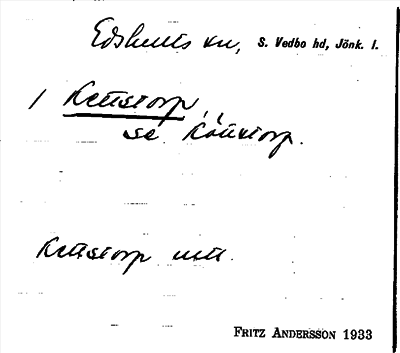 Edshults sn, S. Vedbo hd, Jönk. l.
1 Kettstorp,
se Köttorp.
Kettstorp utt.
FRITZ ANDERSSON 1933